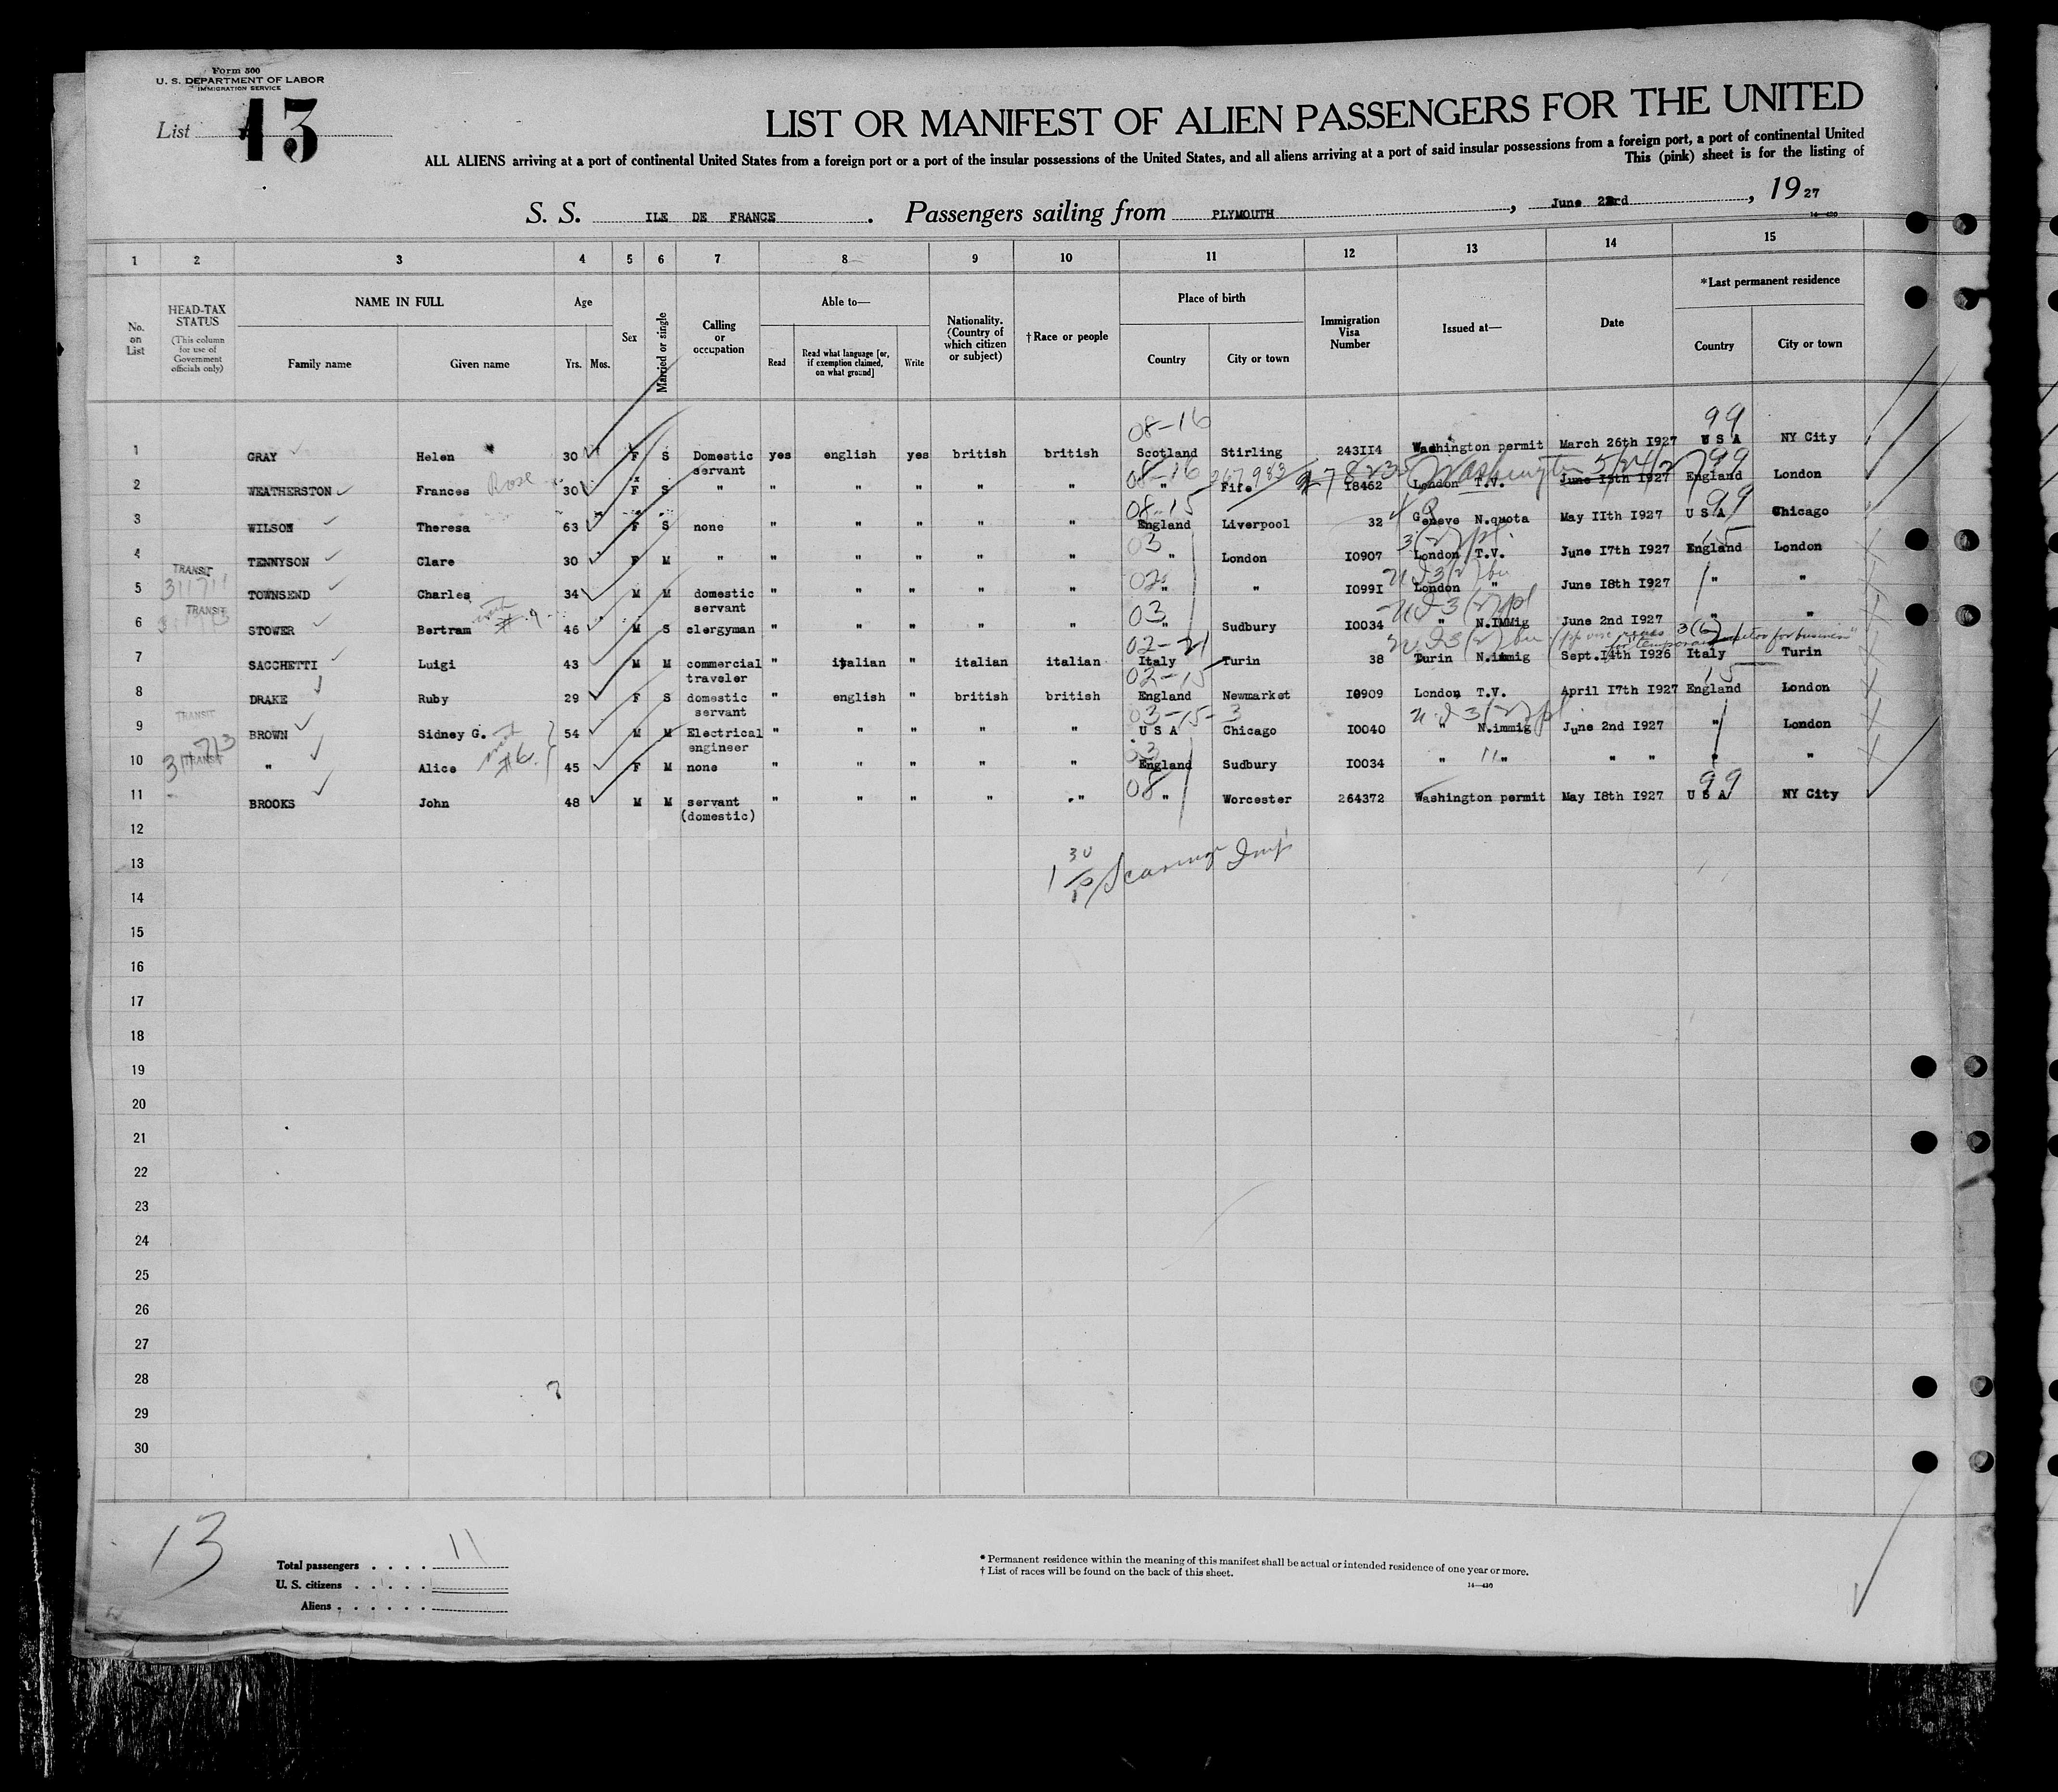 Form 500
U. S. DEPARTMENT OF LABOR
IMMIGRATION SERVICE
List 13
LIST OR MANIFEST OF ALIEN PASSENGERS FOR THE UNITED
ALL ALIENS arriving at a port of continental United States from a foreign port or a port of the insular possessions of the United States, and all aliens arriving at a port of said insular possessions from a foreign port, a port of continental United
This (pink) sheet is for the listing of
S. S. ILE DE FRANCE . Passengers sailing from PLYMOUTH , June 23rd , 1927
14—430
1 2 3 4 5 6 7 8 9 10 11 12 13 14 15
No. on List HEAD-TAX STATUS (This column for use of Government officials only) NAME IN FULL Family name Given name Age Yrs. Mos. Sex Married or single Calling or occupation Able to— Read Read what language [or, if exemption claimed, on what ground] Write Nationality. (Country of which citizen or subject) † Race or people Place of birth Country City or town Immigration Visa Number Issued at— Date *Last permanent residence Country City or town
08-16 99
1 GRAY Helen 30 F S Domestic servant yes english yes british british Scotland Stirling 243II4 Washington permit March 26th I927 U S A NY City
08-16 267983 Washington 5/24/27 99
2 WEATHERSTON Frances Rose 30 F S " " " " " " " Fife I8462 London T.V. June 15th I927 England London
08-15 99
3 WILSON Theresa 63 F S none " " " " " England Liverpool 32 Geneve N.quota May IIth I927 U S A Chicago
03 3(2) pl. 15
4 TENNYSON Clare 30 F M " " " " " " " London I0907 London T.V. June I7th I927 England London
TRANSIT 311711 02
5 TOWNSEND Charles 34 M M domestic servant " " " " " " " I099I London " June I8th I927 " "
TRANSIT 03
6 STOWER Bertram with #9 46 M S clergyman " " " " " " Sudbury I0034 " N.IMMig June 2nd I927 " "
02-21 3(6)
7 SACCHETTI Luigi 43 M M commercial traveler " italian " italian italian Italy Turin 38 Turin N.immig Sept.I4th I926 Italy Turin
02-15 15
8 DRAKE Ruby 29 F S domestic servant " english " british british England Newmarket I0909 London T.V. April I7th I927 England London
TRANSIT 03-15-3
9 BROWN Sidney G. with #6. 54 M M Electrical engineer " " " " " U S A Chicago I0040 " N.immig June 2nd I927 " London
311713 TRANSIT 03
10 " Alice 45 F M none " " " " " England Sudbury I0034 " " " " " "
08 99
11 BROOKS John 48 M M servant (domestic) " " " " " " Worcester 264372 Washington permit May I8th I927 U S A NY City
12
13
14
15
16
17
18
19
20
21
22
23
24
25
26
27
28
29
30
13
Total passengers . . . . 11
U. S. citizens . . . . .
Aliens . . . . . .
* Permanent residence within the meaning of this manifest shall be actual or intended residence of one year or more.
† List of races will be found on the back of this sheet.
14—430